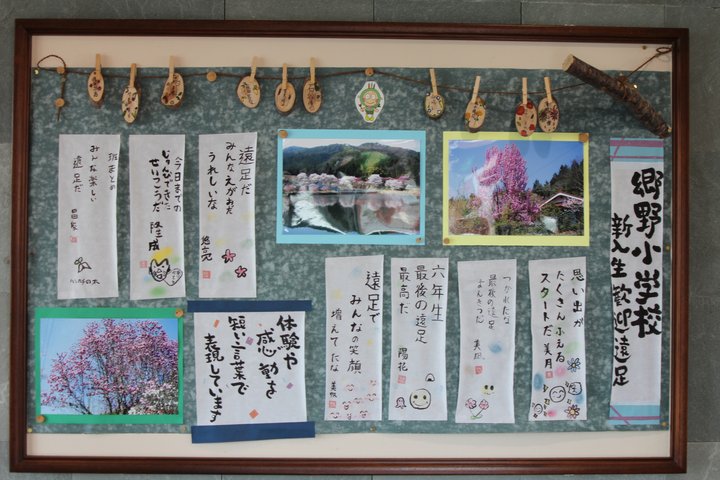 郷野小学校
新入生歓迎遠足
思い出が
たくさんふえる
スタートだ 美月
つかれたな
最後の遠足
よんきつだ 美凪
六年生
最後の遠足
最高だ 陽花
遠足で
みんなの笑顔
増えてたな
体験や
感心動を
短い言葉で
表現しています
遠足だ
みんなえがおだ
うれしいな 悠亮
今日までの
じゅんびできた
せいこうだ 隆成
班まとめ
みんな楽しい
遠足だ